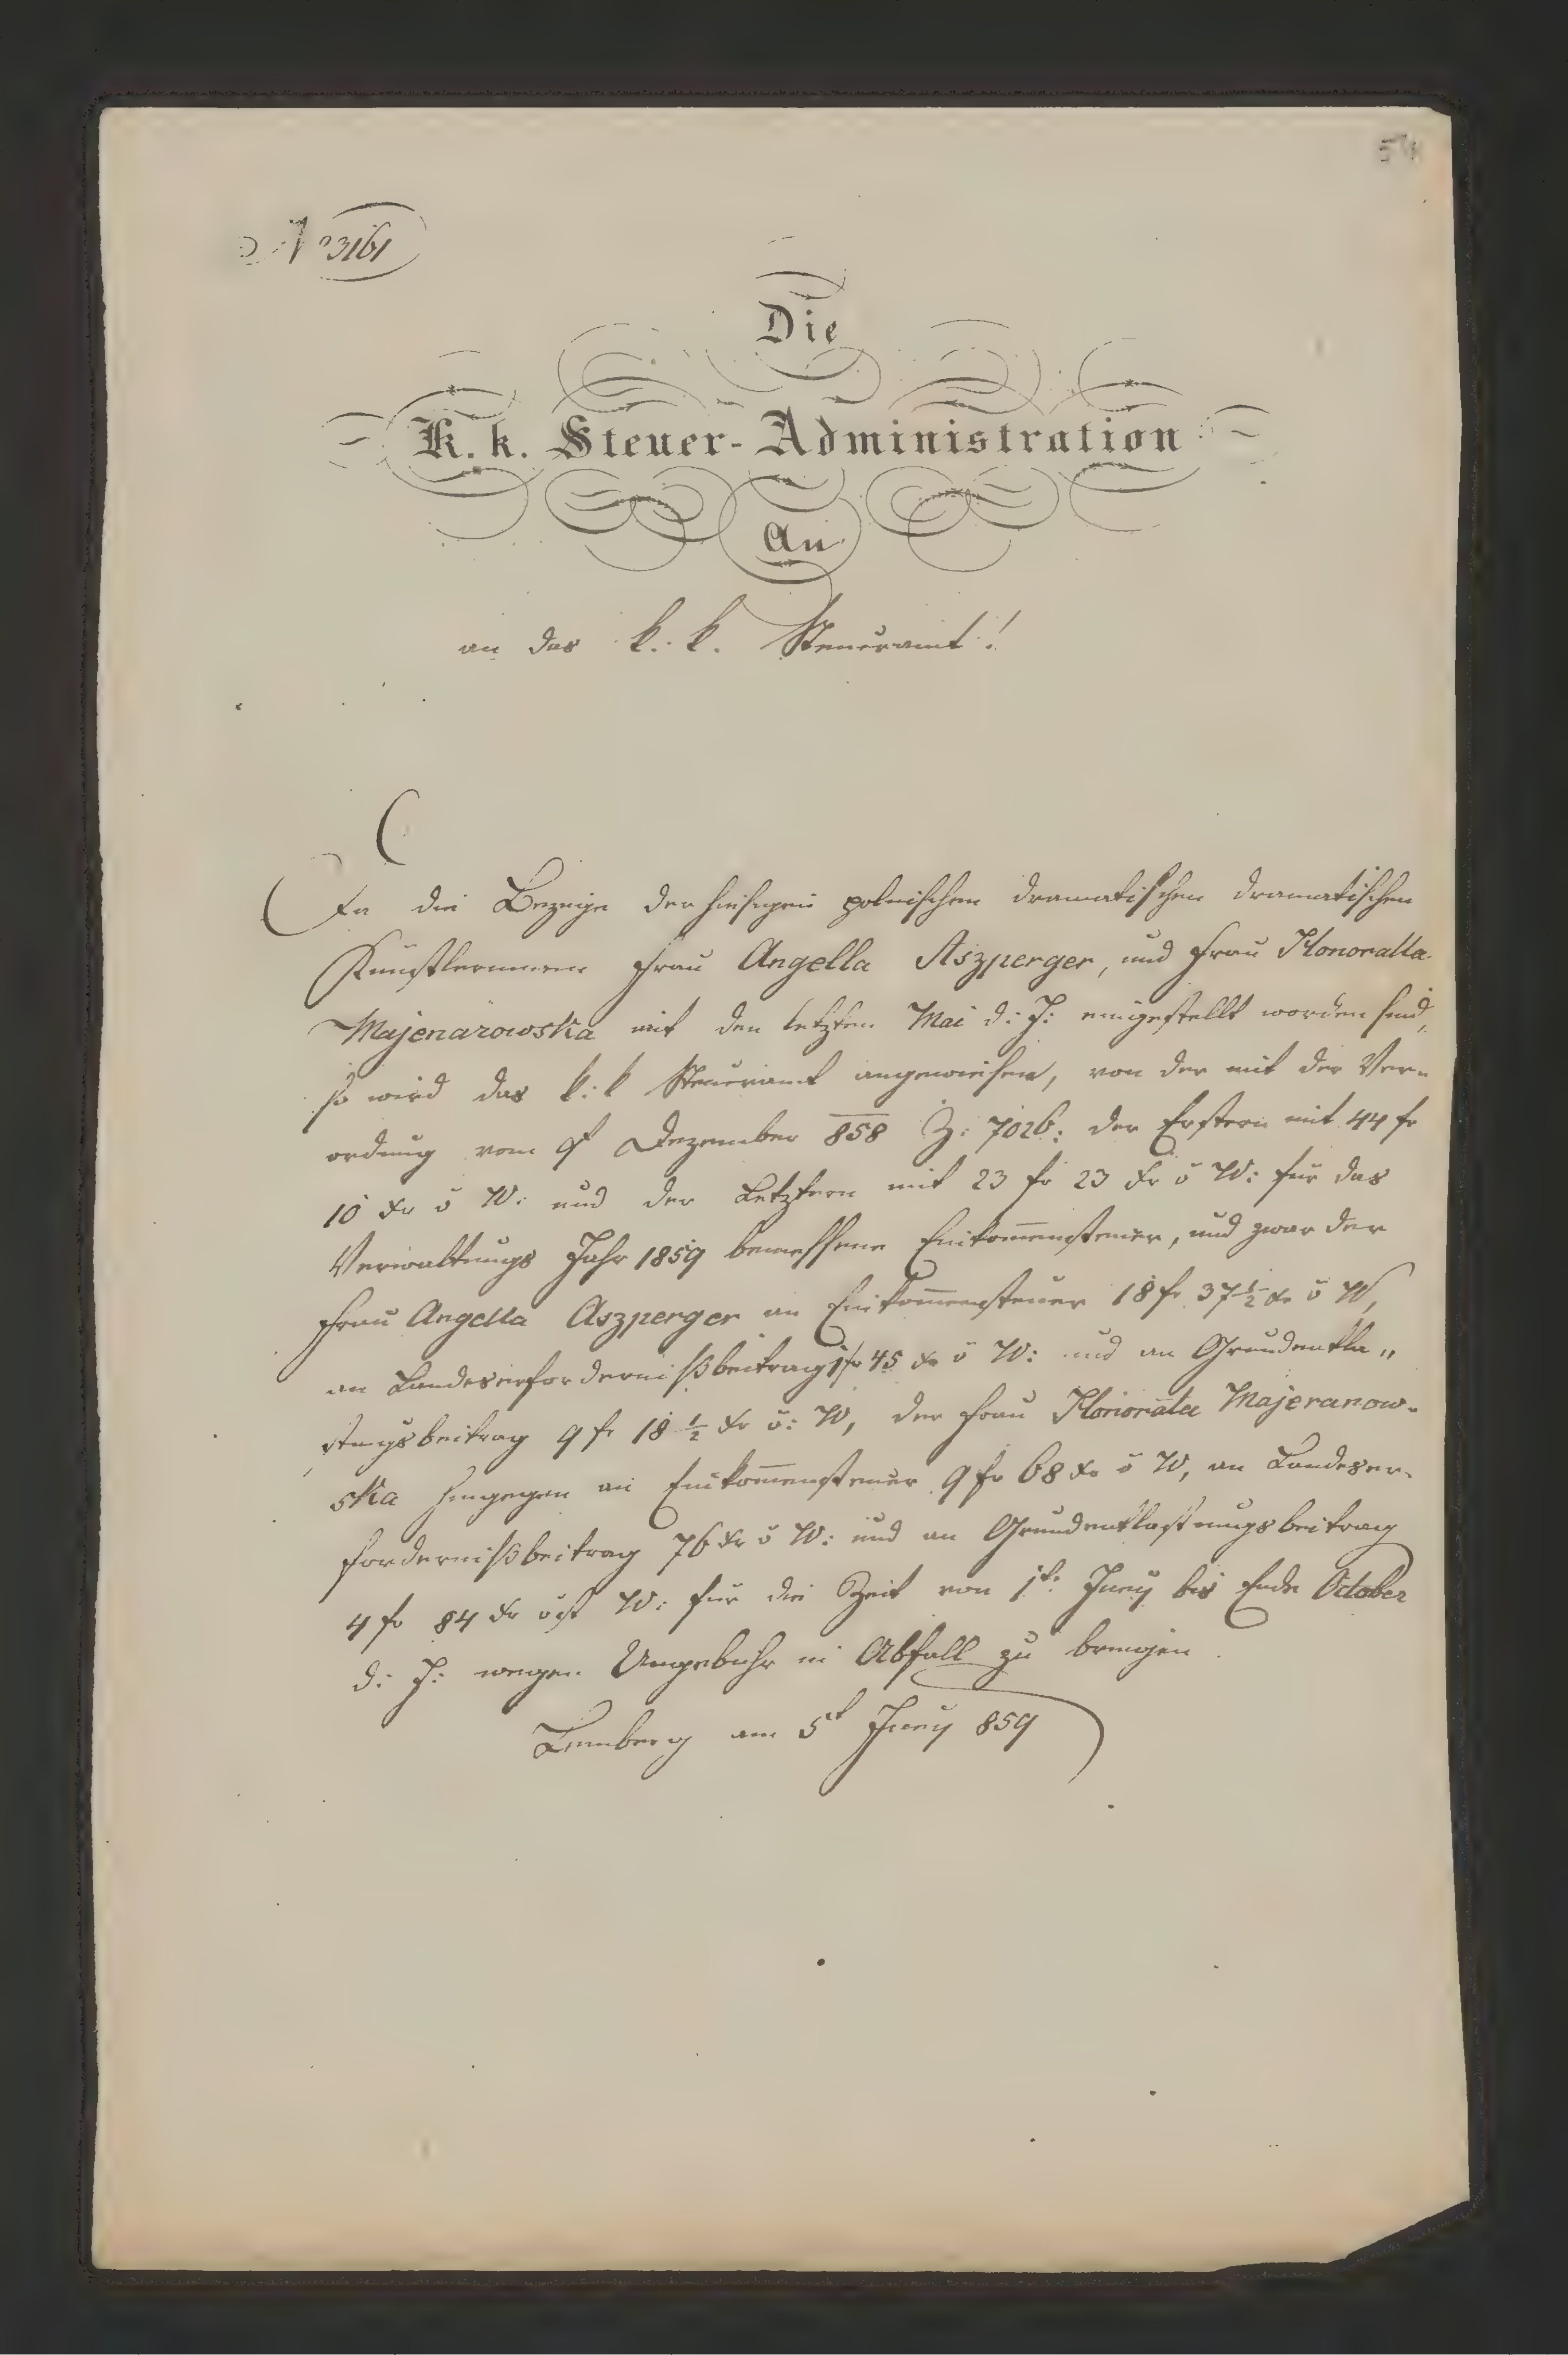 No 3161
Die
K. k. Steuer-Administration
An
an das k. k. Steueramt!
Da die Bezüge der hiesigen polnischen dramatischen dramatischen
Künstlerinnen Frau Angella Aszperger, und Frau Honoratta
Majenarowska mit den letzten Mai d: J: eingestellt worden sind,
so wird das k: k Steueramt angewiesen, von der mit der Ver-
ordnung vom 9t Dezember 858 Z: 7026: der Erstern mit 44 fr
10 xr ö W: und der Letztern mit 23 fr 23 xr ö W: für das
Verwaltungs Jahr 1859 bemessene Einkom̅ensteuer, und zwar der
Frau Angella Aszperger an Einkom̅ensteuer 18 fr 37 ½ xr ö W,
an Landeserfordernißbeitrag 1 fr 45 xr ö W: und an Grundentla„
stungsbeitrag 9 fr 18 ½ xr ö: W, der Frau Honorata Majeranow-
ska hingegen an Einkom̅ensteuer 9 fr 68 xr ö W, an Landeser-
fordernißbeitrag 76 xr ö W: und an Grundentlastungsbeitrag
4 fr 84 xr öst W: für die Zeit von 1t: Juny bis Ende October
d: J: wegen Ungebühr in Abfall zu bringen
Lemberg am 5t Juny 859